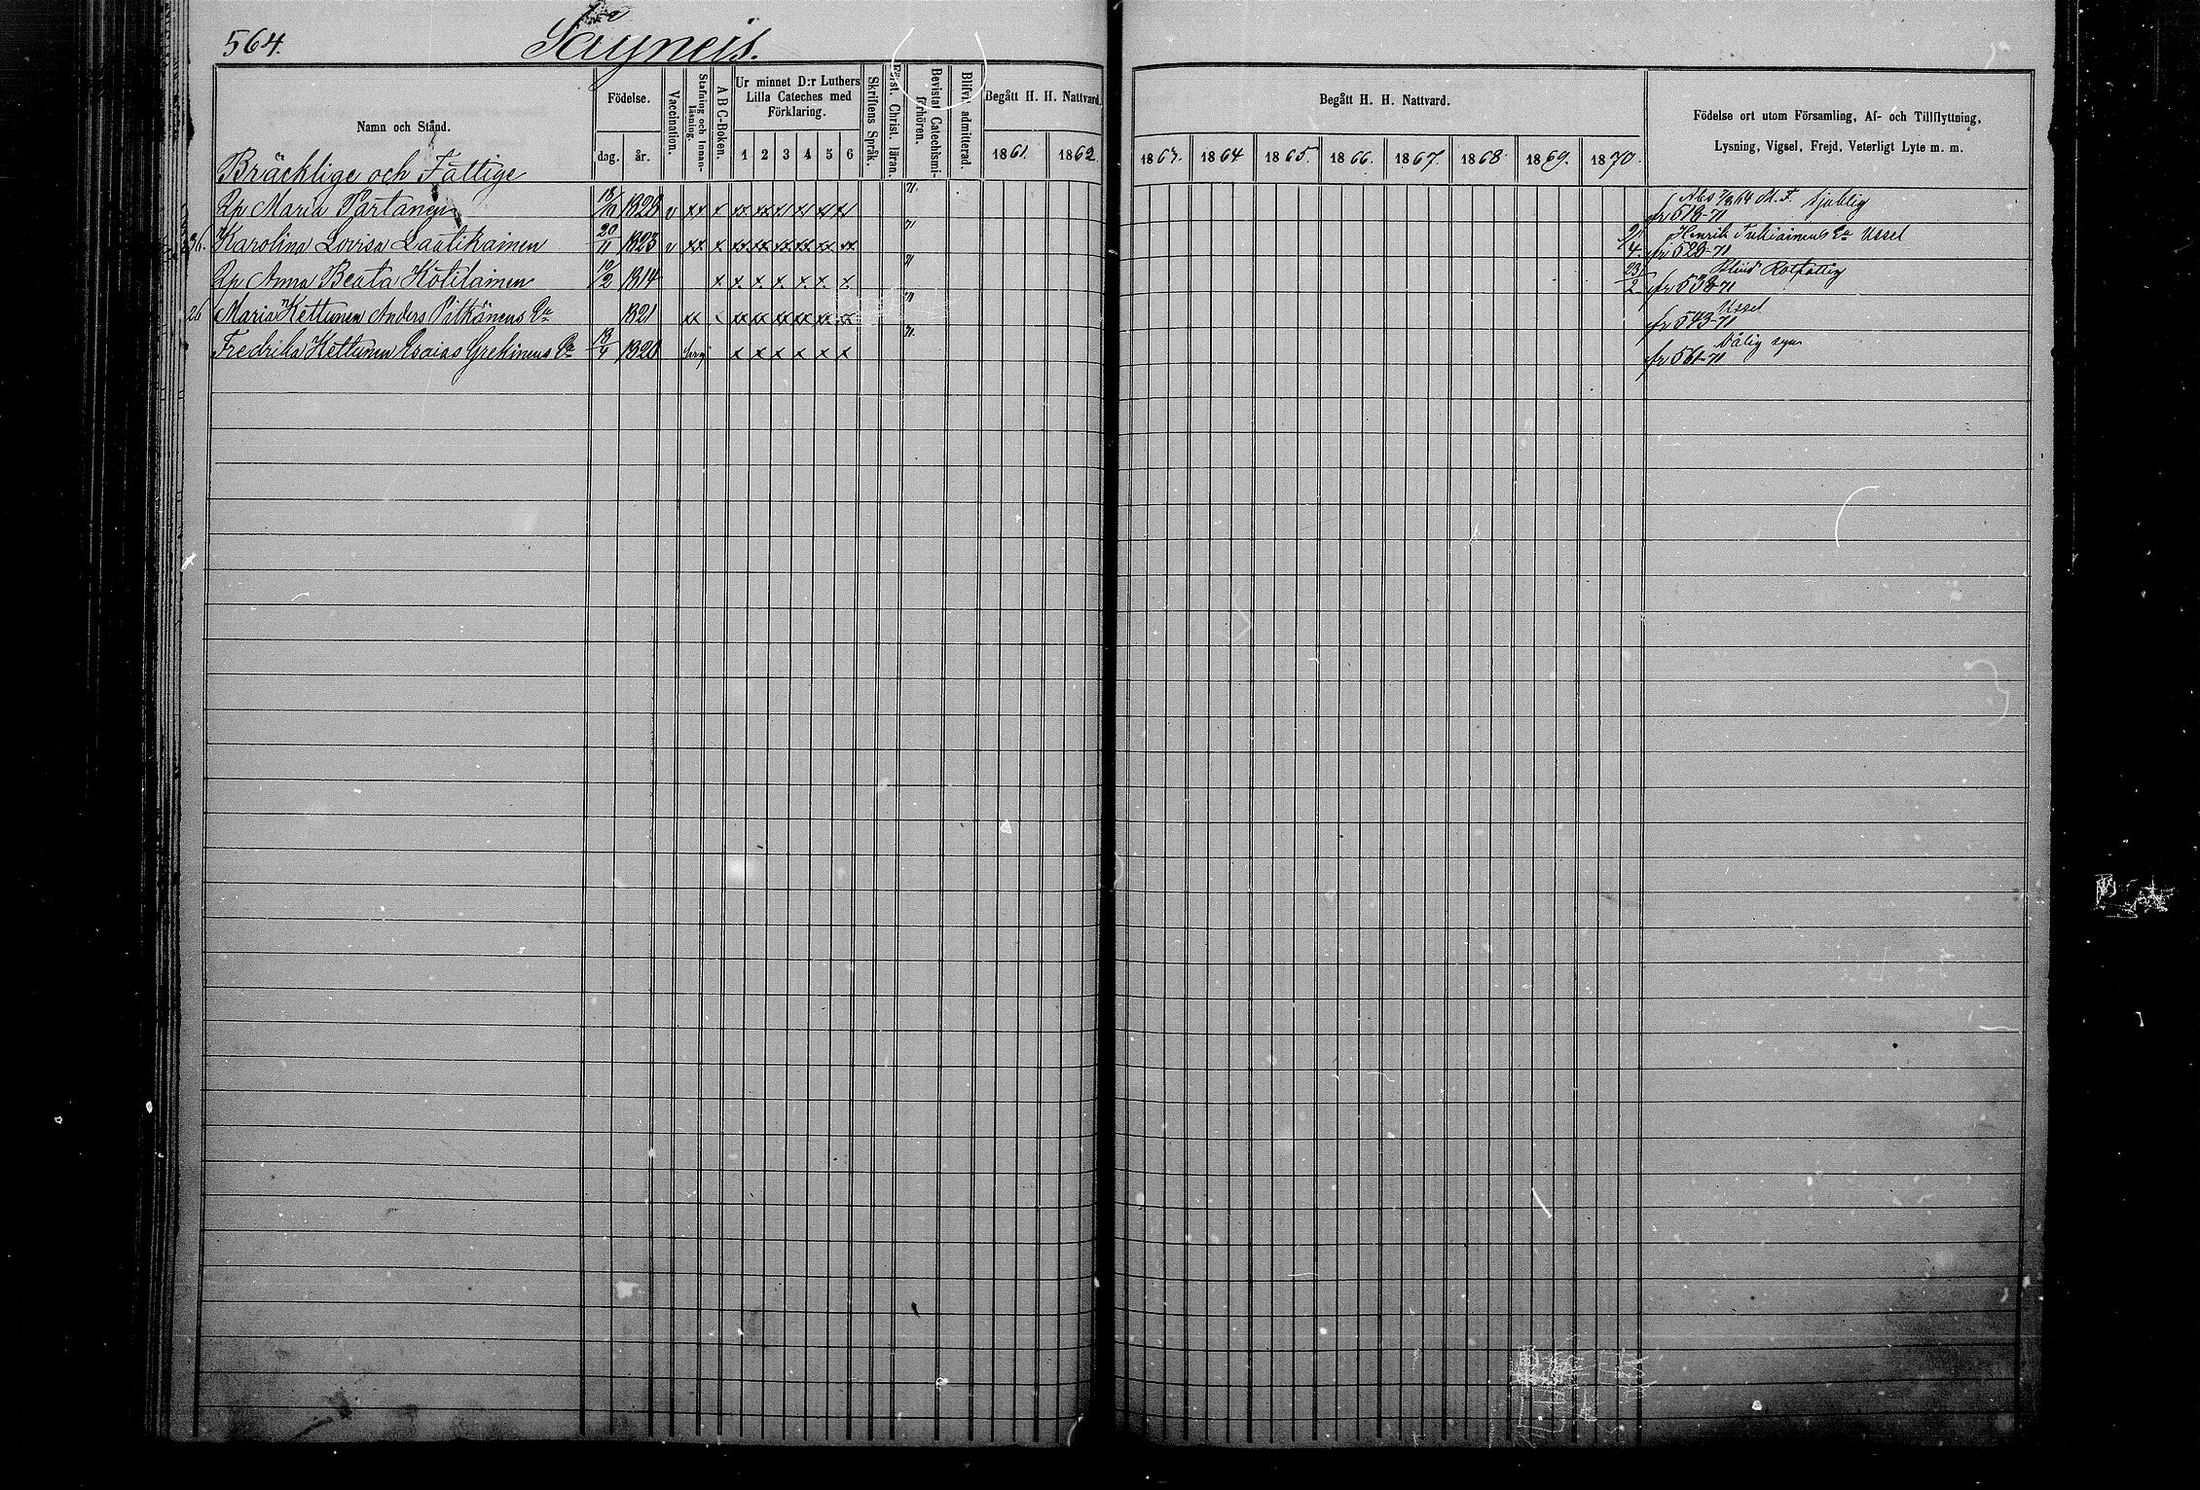 564.
Säyneis.
Namn och Stånd.
Födelse.
dag. år.
Vaccination.
Stafning och Innanläsning.
A B C-Boken.
Ur minnet D:r Luthers Lilla Cateches med Förklaring.
1 2 3 4 5 6
Skriftens Språk.
Först. Christ. läran.
Bevistat Catechismiförhören.
Blifvit admitterad.
Begått H. H. Nattvard.
1861. 1862.
Begått H. H. Nattvard.
1863. 1864 1865. 1866. 1867. 1868. 1869. 1870.
Födelse ort utom Församling, Af- och Tillflyttning,
Lysning, Vigsel, Frejd, Veterligt Lyte m. m.
Bräcklige och Fattige
Maria Partanen 18/10 1820 v xx x xx xx xx xx xx xx 71. sjuklig
fr 518-71
Karolina Lovisa Laatikainen 20/11 1823 v xx x xx xx xx xx xx xx 71 Henrik Tukiainens Ea Ussel
fr 528-71
Anna Beata Kotilainen 12/2 1814 x x x x x x x 71 Blind Rotfattig
fr 538-71
26 Maria Kettunen Anders Pitkänens Ea 1821 xx xx xx xx xx xx xx 71 Ussel
fr 543-71
Fredrika Kettunen Esaias Grekinens Ea 18/4 1820 beg x x x x x x 71. Dålig syn
fr 561-71